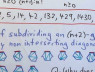 , 5, 14, 42, 132, 429, 1430,
of subdividing an (n+2)-g
non intersecting diagon